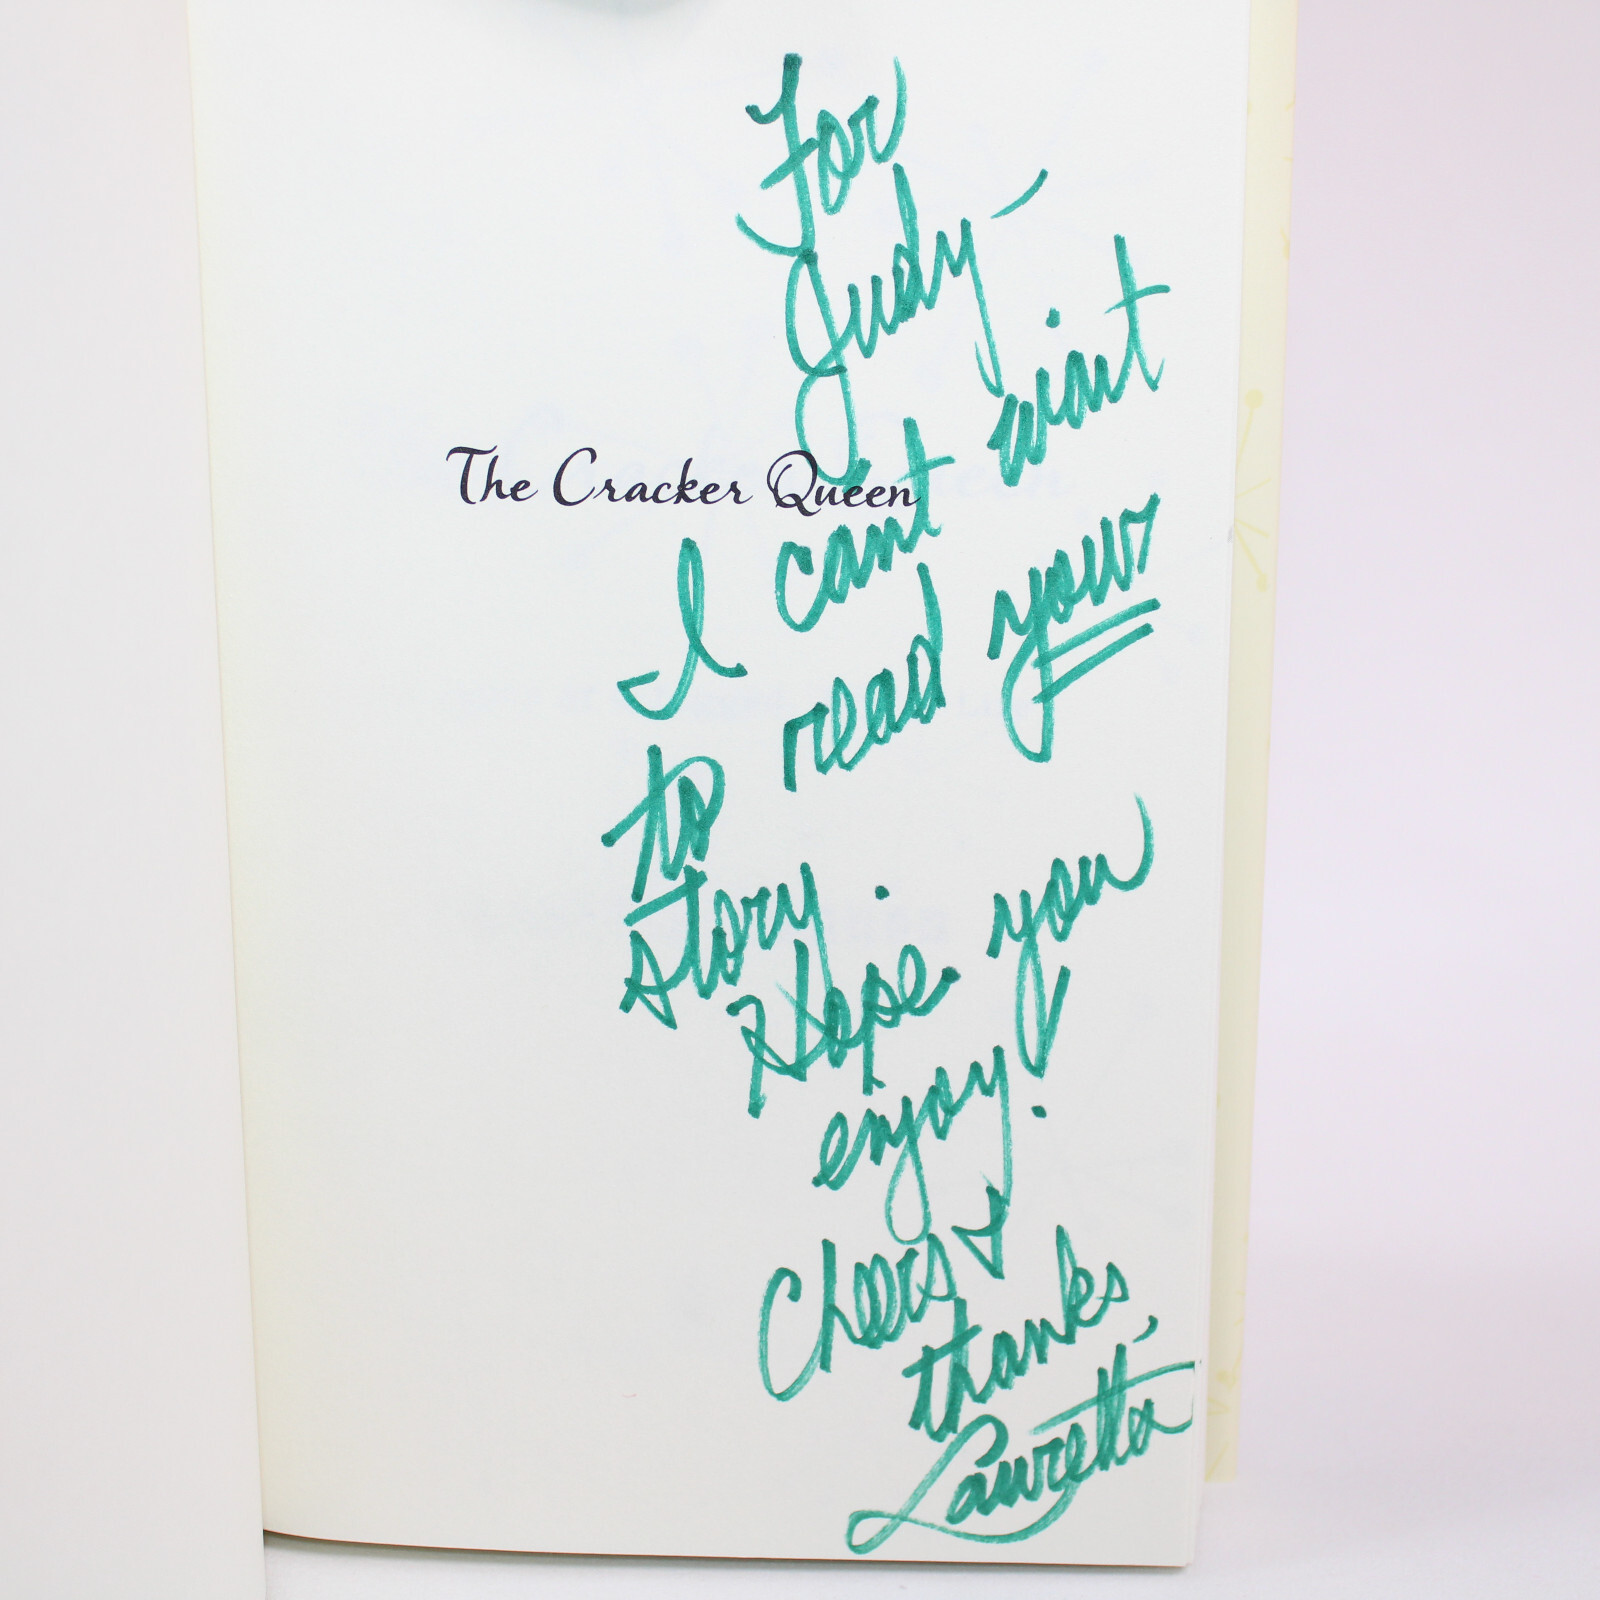 For
Judy -
The Cracker Queen
I cant wait
to read your
story.
Hope you
enjoy!
Cheers &
thanks,
Lauretta